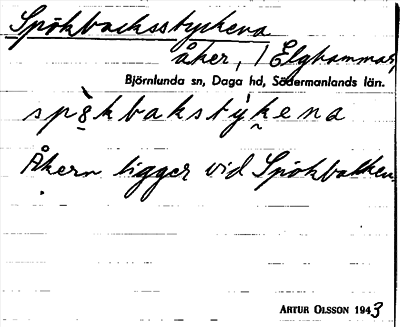 Spökbacksstyckena
åker, / Elghammar,
Björnlunda sn, Daga hd, Södermanlands län.
spö̀kbakstýkena
Åkern ligger vid Spökbacken.
ARTUR OLSSON 1943